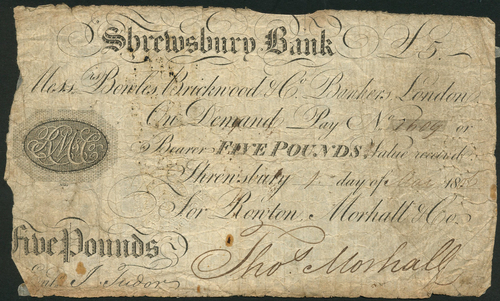 Shrewsbury Bank £5
Messrs. Bowles, Brickwood & Co. Bankers London
On Demand Pay No. or
Bearer FIVE POUNDS Value received
Shrewsbury day of 18
For Rowton Morhall & Co.
RM&Co
Five Pounds Thos. Morhall
J. Tudor